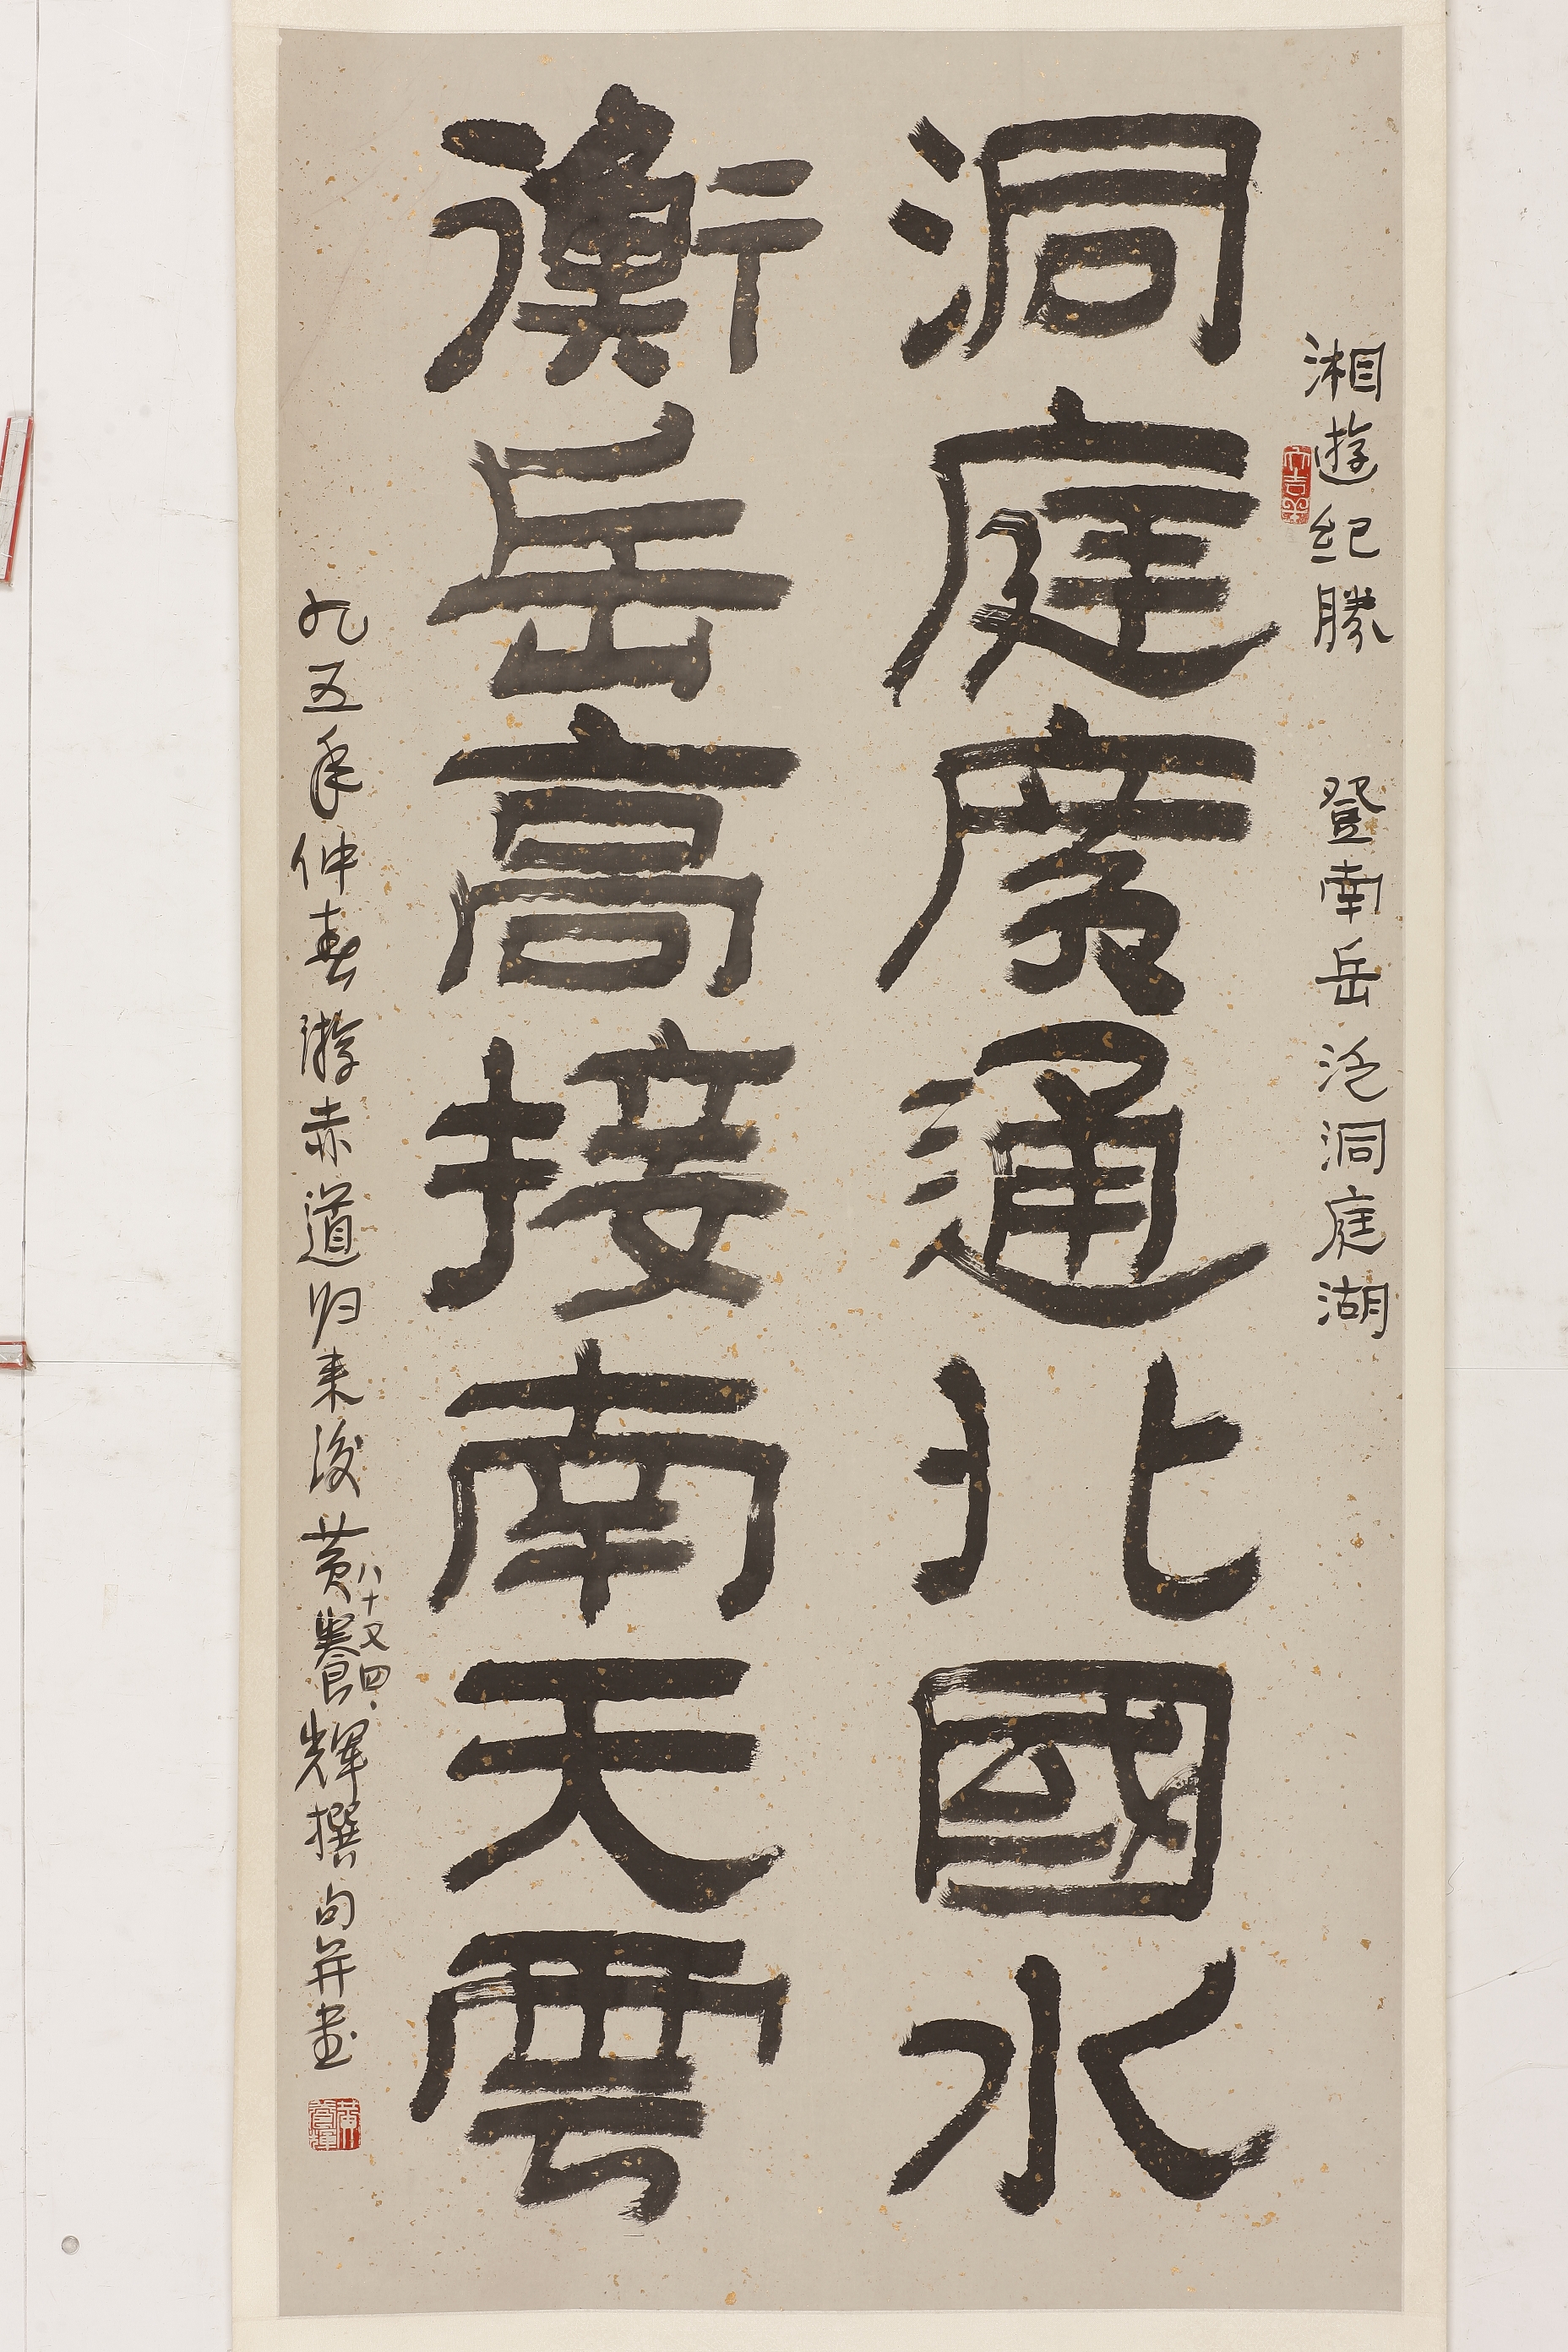 湘遊紀勝 登南岳泛洞庭湖
大吉羊
洞庭廣通北國水
衡岳高接南天雲
九五年仲春游赤道归来後黄養輝撰句并書
八十又四
黄養輝